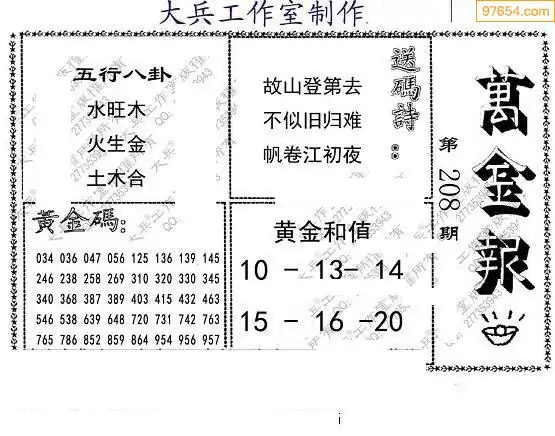 大兵工作室制作
97654.com
五行八卦
水旺木
火生金
土木合
故山登第去
不似旧归难
帆卷江初夜
送碼詩:
黃金碼:
034 036 047 056 125 136 139 145
246 238 258 269 310 320 330 345
340 368 387 389 403 415 432 463
546 538 639 648 720 731 742 763
765 786 852 859 864 954 956 957
黄金和值
10 - 13- 14
15 - 16 -20
萬金報
第208期